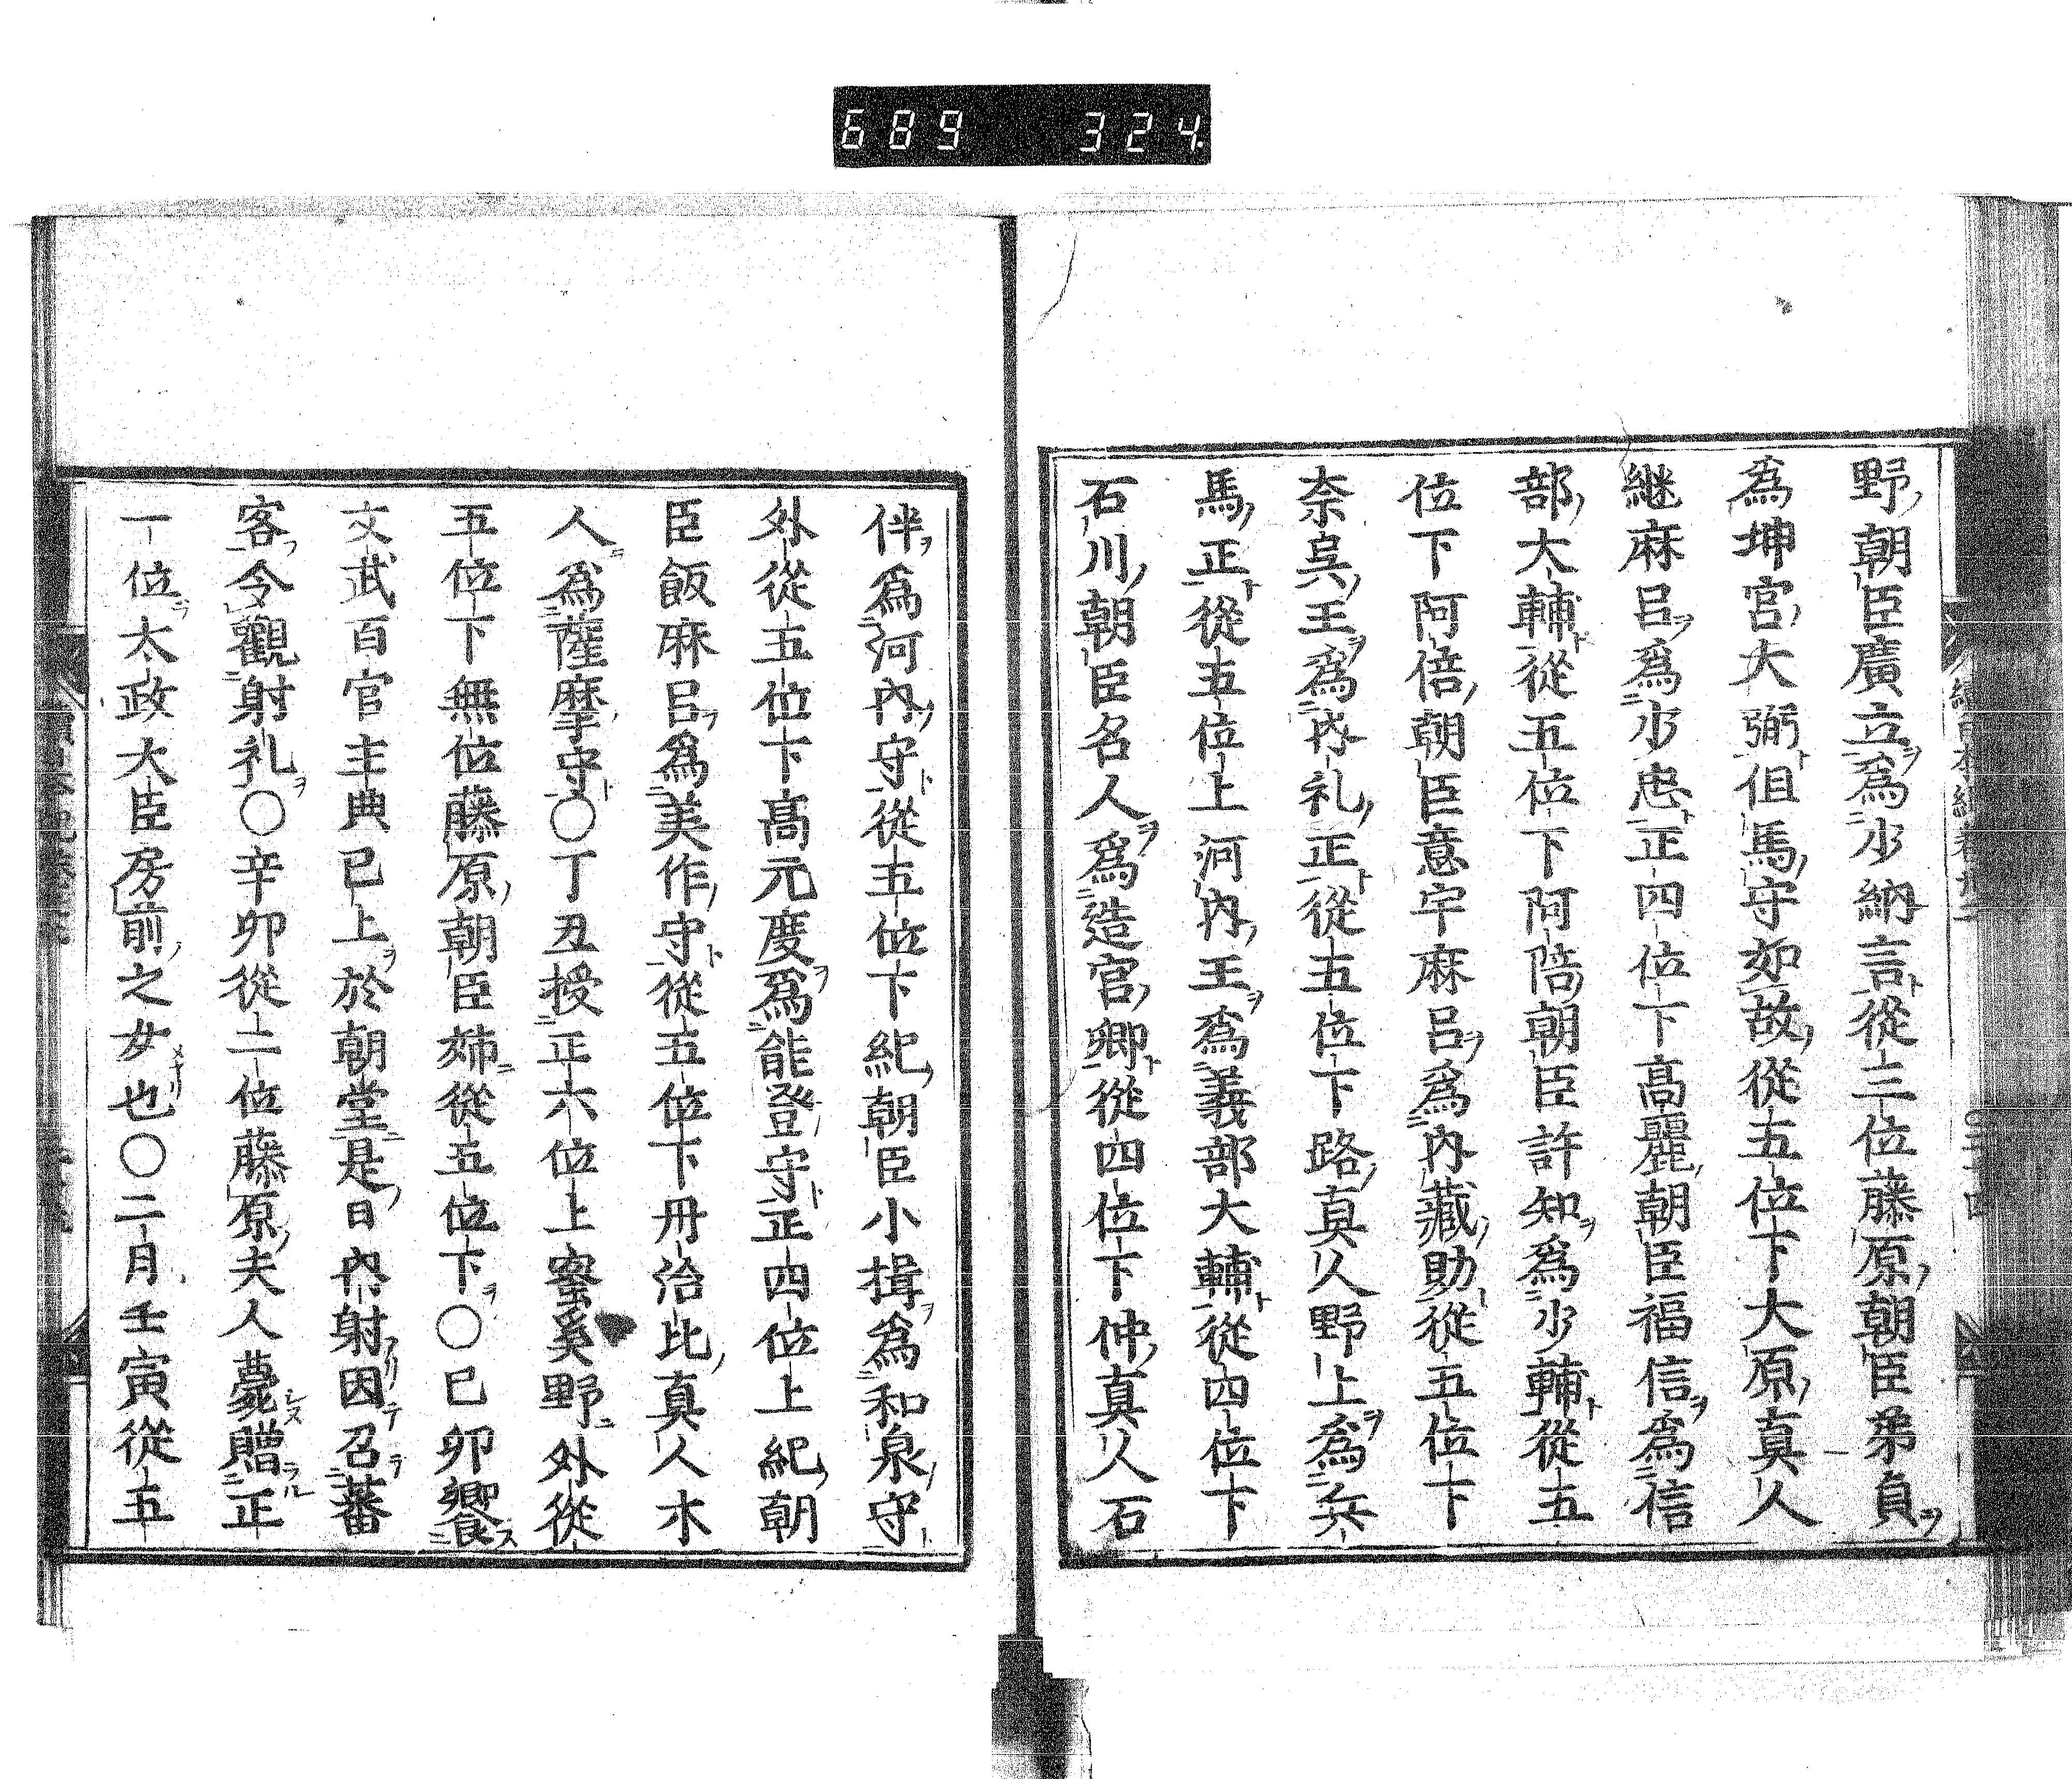 689 324
野朝臣廣立爲少納言從三位藤原朝臣弟貞
為坤宮大弼伹馬守如故從五位下大原真人
継麻呂爲少忠正四位下髙麗朝臣福信爲信
部大輔從五位下阿陪朝臣許知爲少輔從五
位下阿倍朝臣意宇麻呂爲内藏助從五位下
奈貴王爲内礼正從五位下路真人野上爲兵
馬正從五位上河内王爲義部大輔從四位下
石川朝臣名人爲造宮卿從四位下仲真人石
伴爲河内守從五位下紀朝臣小揖爲和泉守
外從五位下髙元度爲能登守正四位上紀朝
臣飯麻呂爲美作守從五位下丹治比真人木
人爲薩摩守〇丁丑授正六位上蜜奚野外從
五位下無位藤原朝臣姉從五位下〇已卯饗
文武百官主典已上於朝堂是日内射因召蕃
客令觀射礼〇辛卯從二位藤原夫人薨贈正
一位太政大臣房前之女也〇二月壬寅從五